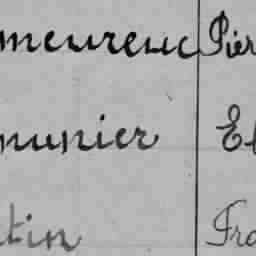 meurenc Pier
munier Et
tin Fra